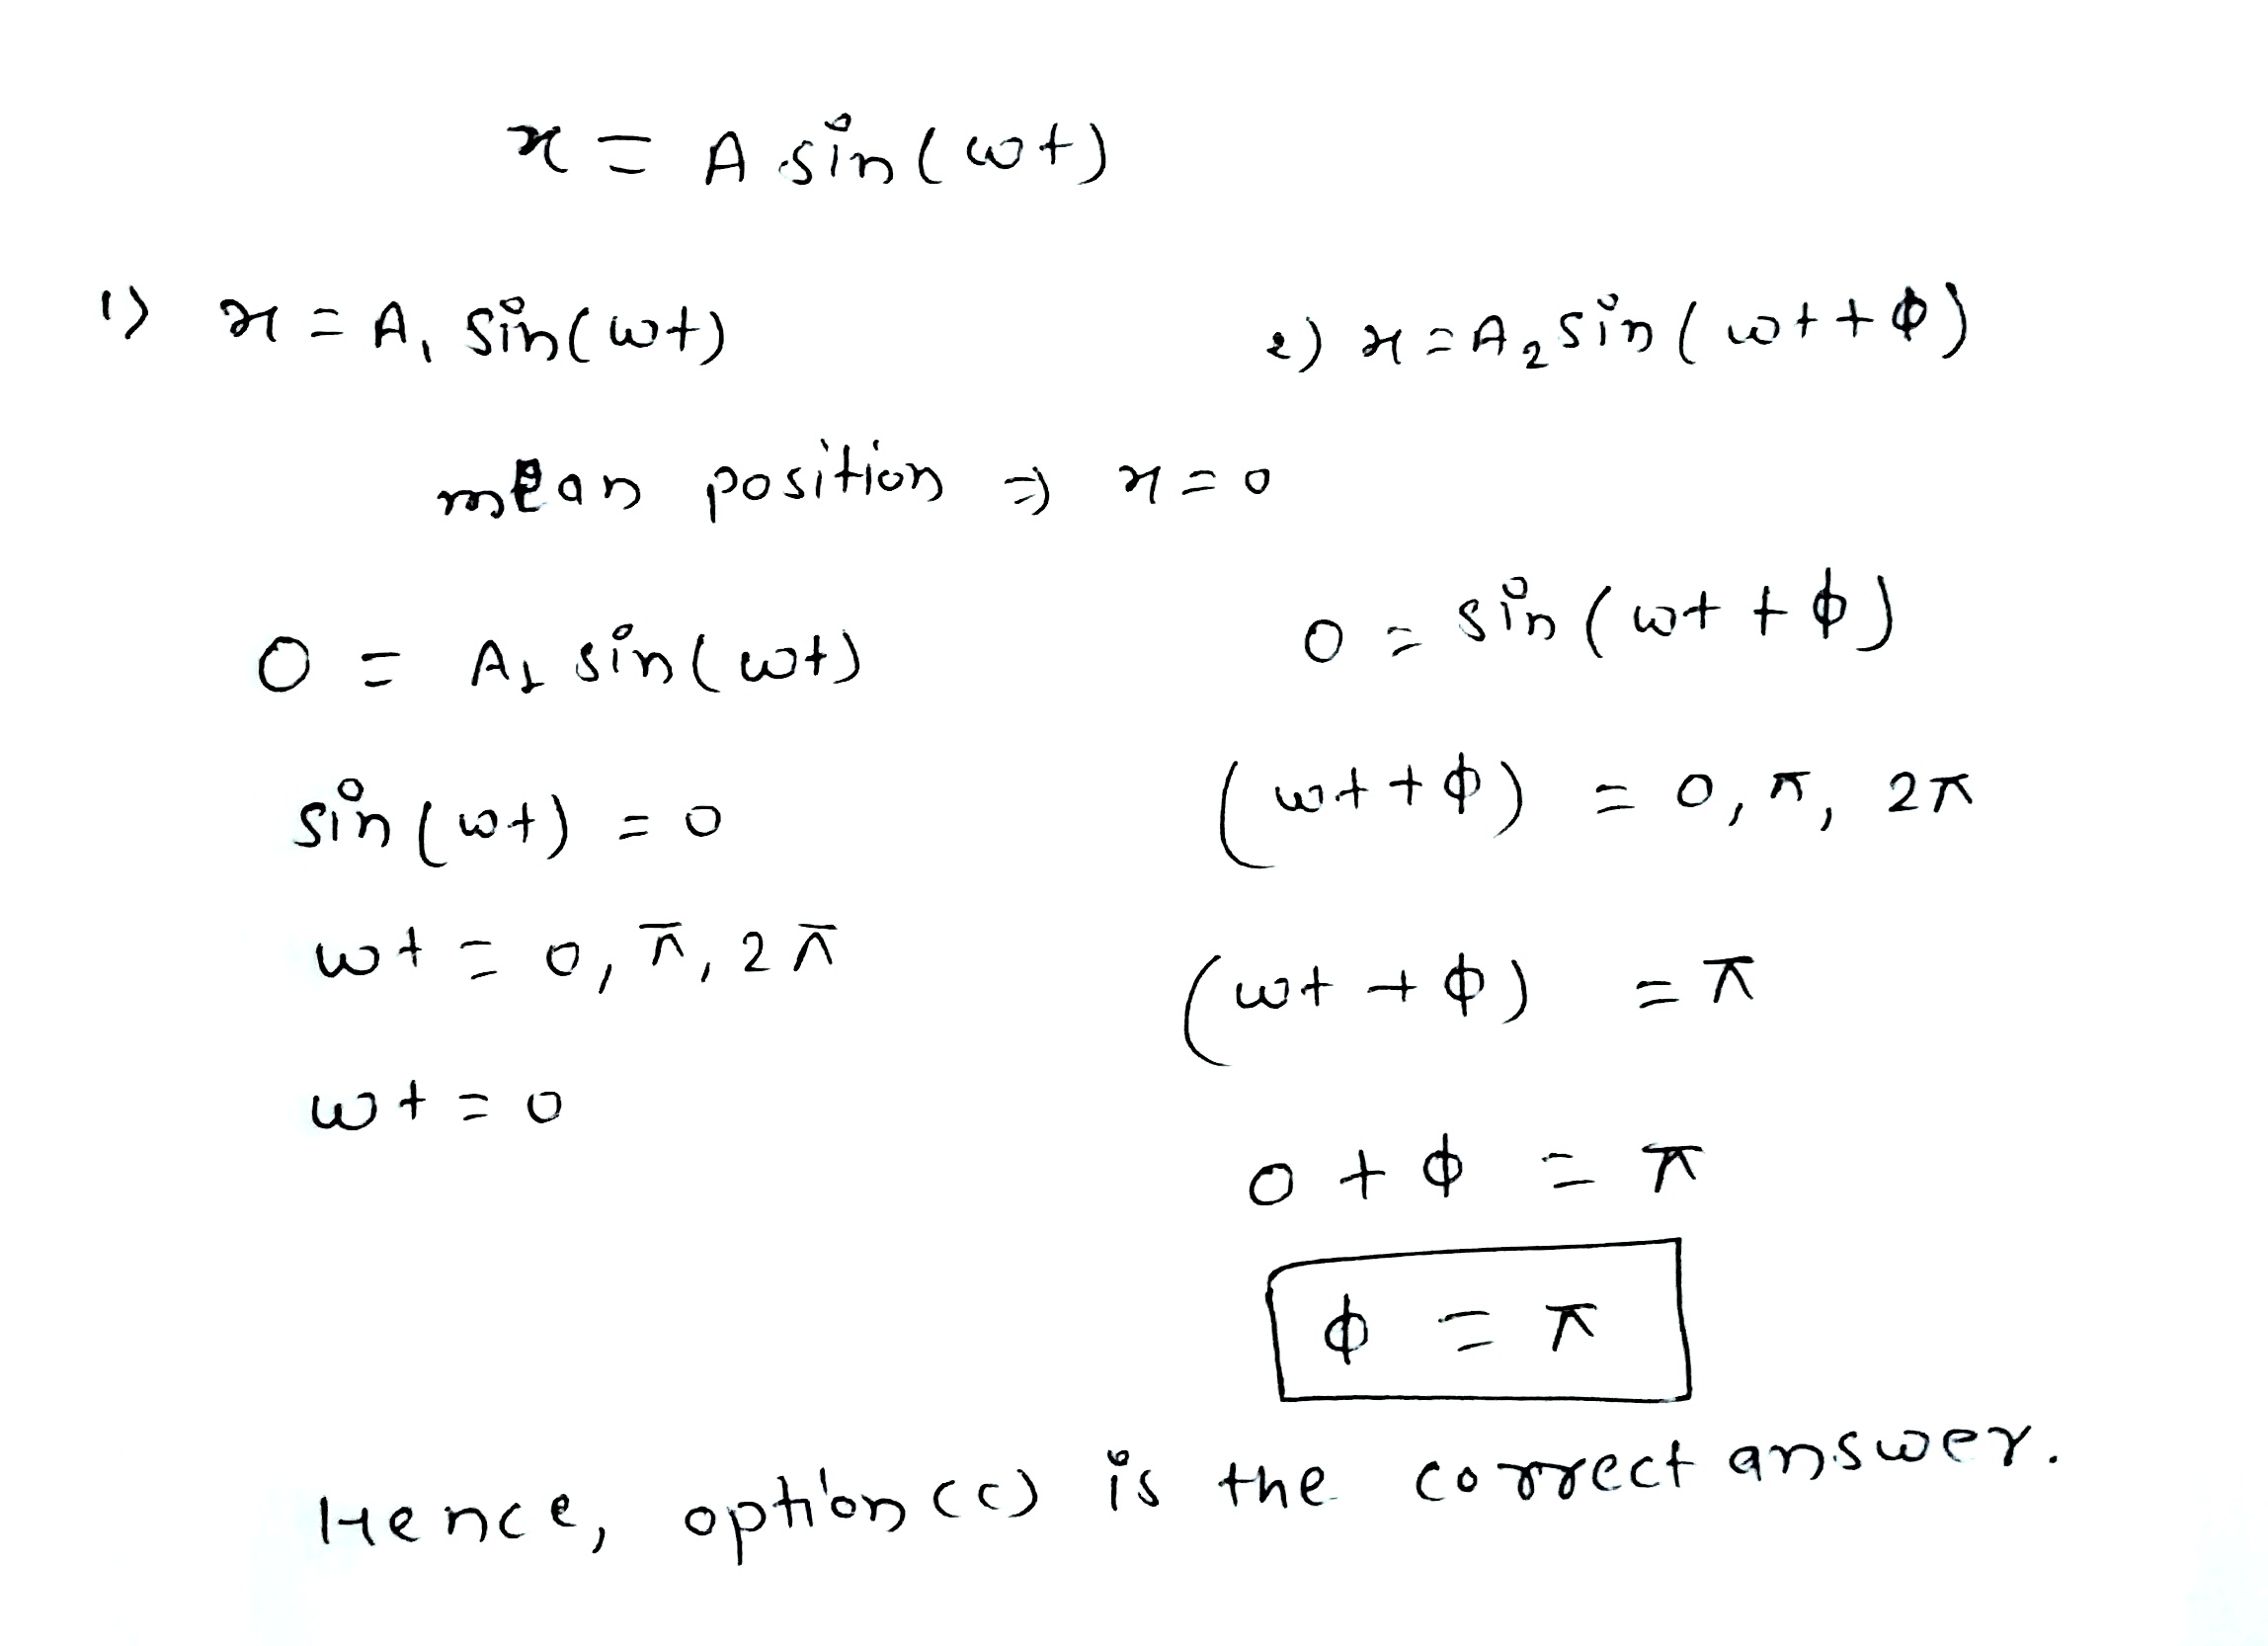 x = A sin(ωt)
1) x = A₁ sin(ωt)
2) x = A₂ sin(ωt + ϕ)
mean position ⇒ x = 0
0 = A₁ sin(ωt)
0 = sin(ωt + ϕ)
sin(ωt) = 0
(ωt + ϕ) = 0, π, 2π
ωt = 0, π, 2π
(ωt + ϕ) = π
ωt = 0
0 + ϕ = π
ϕ = π
Hence, option (c) is the correct answer.